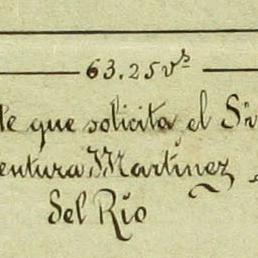 63.25 v.s
de que solicita el Sr
entura Martinez
del Rio